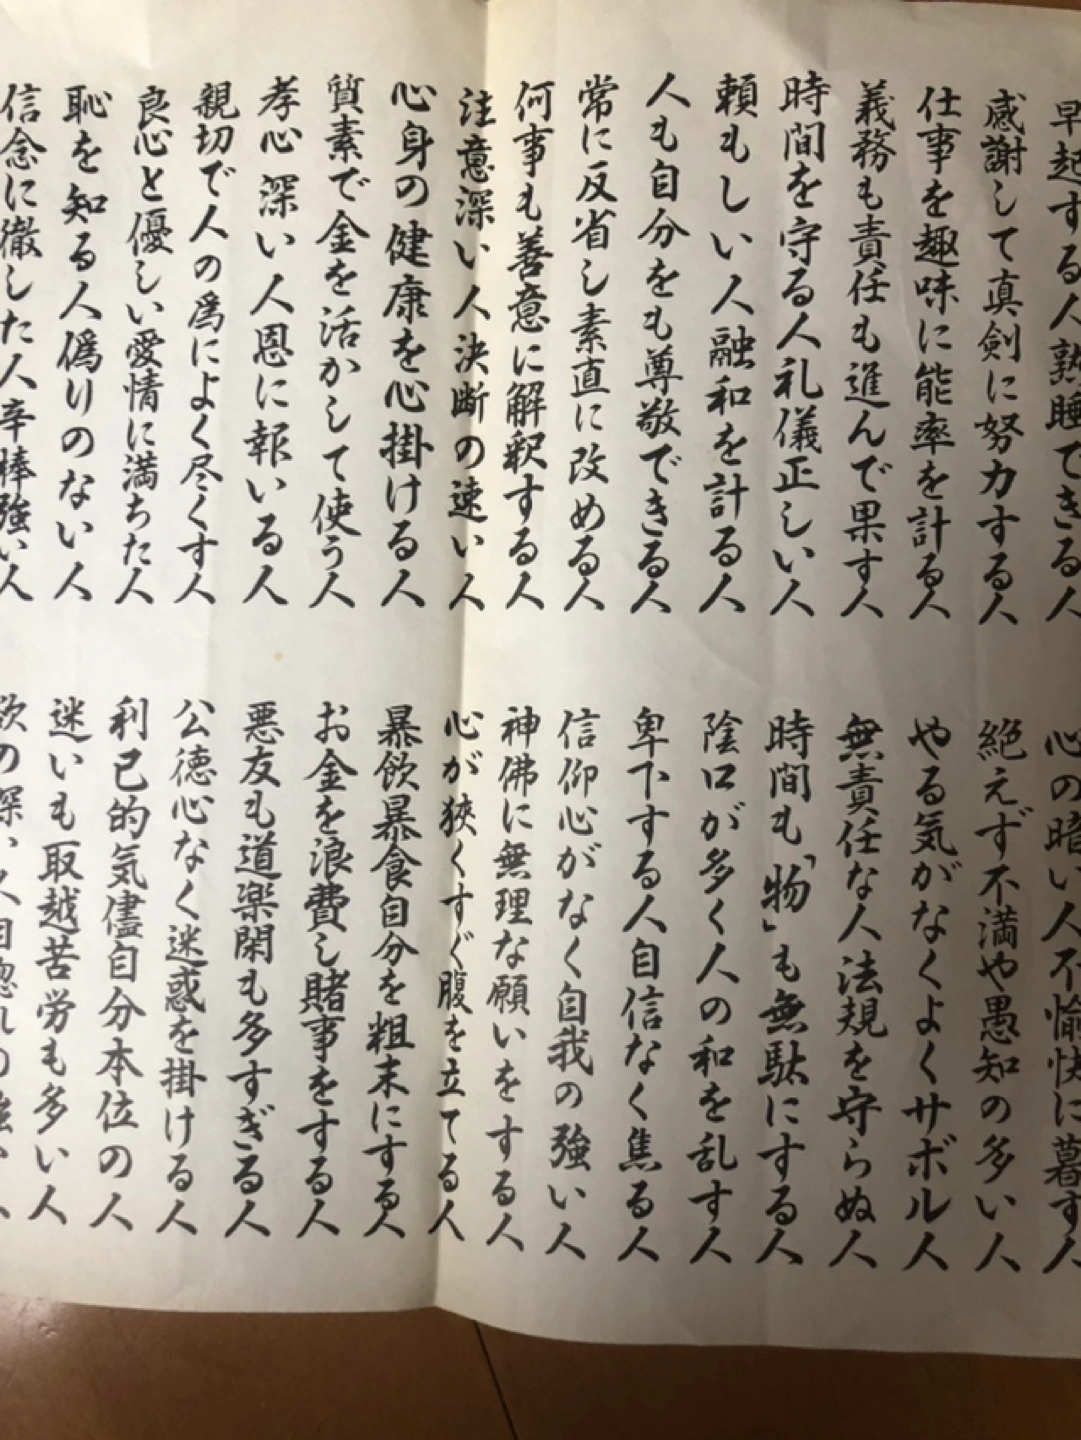 早起する人熟睡できる人
感謝して真剣に努力する人
仕事を趣味に能率を計る人
義務も責任も進んで果す人
時間を守る人礼儀正しい人
頼もしい人融和を計る人
人も自分をも尊敬できる人
常に反省し素直に改める人
何事も善意に解釈する人
注意深い人決断の速い人
心身の健康を心掛ける人
質素で金を活かして使う人
孝心深い人恩に報いる人
親切で人の為によく尽くす人
良心と優しい愛情に満ちた人
恥を知る人偽りのない人
信念に徹した人辛棒強い人
心の暗い人不愉快に暮す人
絶えず不満や愚知の多い人
やる気がなくよくサボル人
無責任な人法規を守らぬ人
時間も「物」も無駄にする人
陰口が多く人の和を乱す人
卑下する人自信なく焦る人
信仰心がなく自我の強い人
神佛に無理な願いをする人
心が狭くすぐ腹を立てる人
暴飲暴食自分を粗末にする人
お金を浪費し賭事をする人
悪友も道楽閑も多すぎる人
公徳心なく迷惑を掛ける人
利己的気儘自分本位の人
迷いも取越苦労も多い人
欲の深い人自惚れの強い人